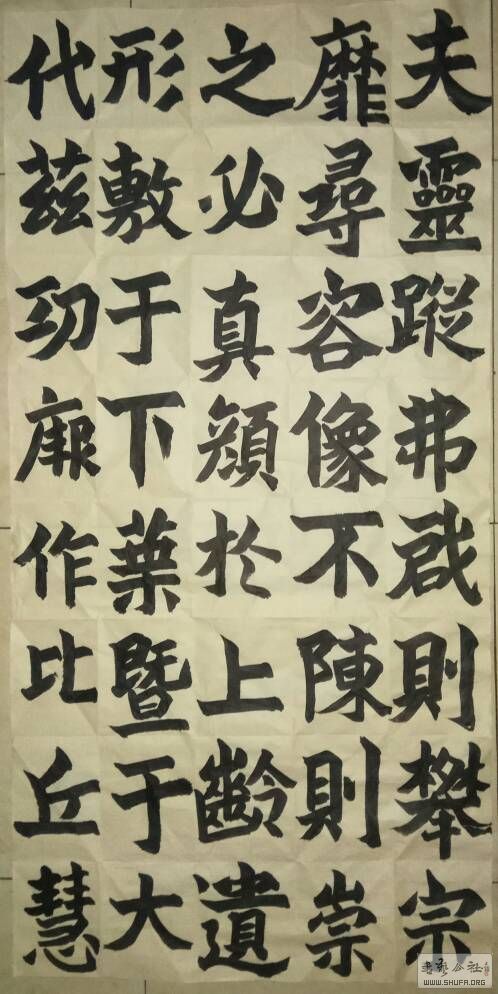 夫靈蹤弗啟則攀宗
靡尋容像不陳則崇
之必真顏於上齡遺
形敷于下葉暨于大
代茲功厥作比丘慧
公社
WWW.SHUFA.ORG